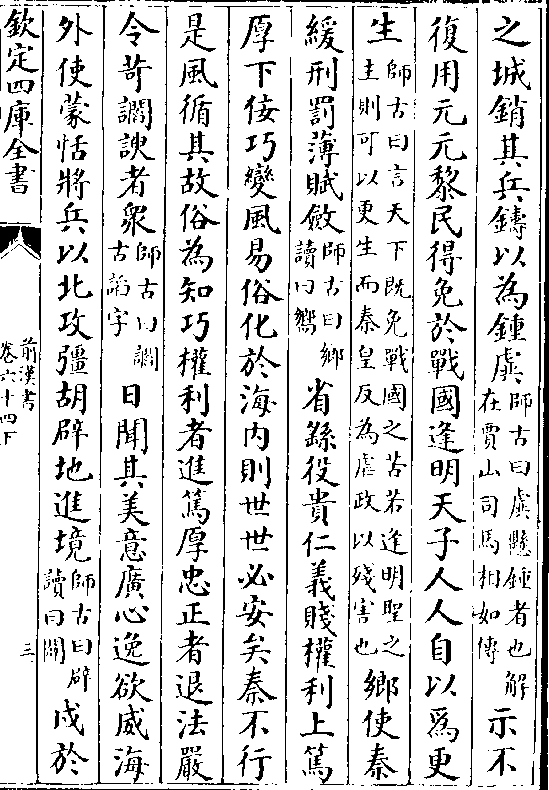 之城銷其兵鑄以為鍾虡師古曰虡懸鍾者也解在賈山司馬相如傳示不
復用元元黎民得免於戰國逢明天子人人自以為更
生師古曰言天下既免戰國之苦若逢明聖之主則可以更生而秦皇反為虐政以殘害也鄉使秦
緩刑罰薄賦斂師古曰鄉讀曰嚮省繇役貴仁義賤權利上篤
厚下佞巧變風易俗化於海內則世世必安矣秦不行
是風循其故俗為知巧權利者進篤厚忠正者退法嚴
令苛讇諛者衆師古曰讇古諂字日聞其美意廣心逸欲威海
外使蒙恬將兵以北攻彊胡辟地進境師古曰辟讀曰闢戍於
欽定四庫全書
前漢書
卷六十四下
三